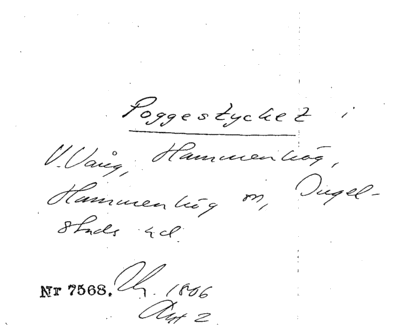 Poggestycket i
V. Vång, Hammenhög,
Hammenhög sn, Ingel-
stads hd.
Nr 7568. 1806
Akt 2